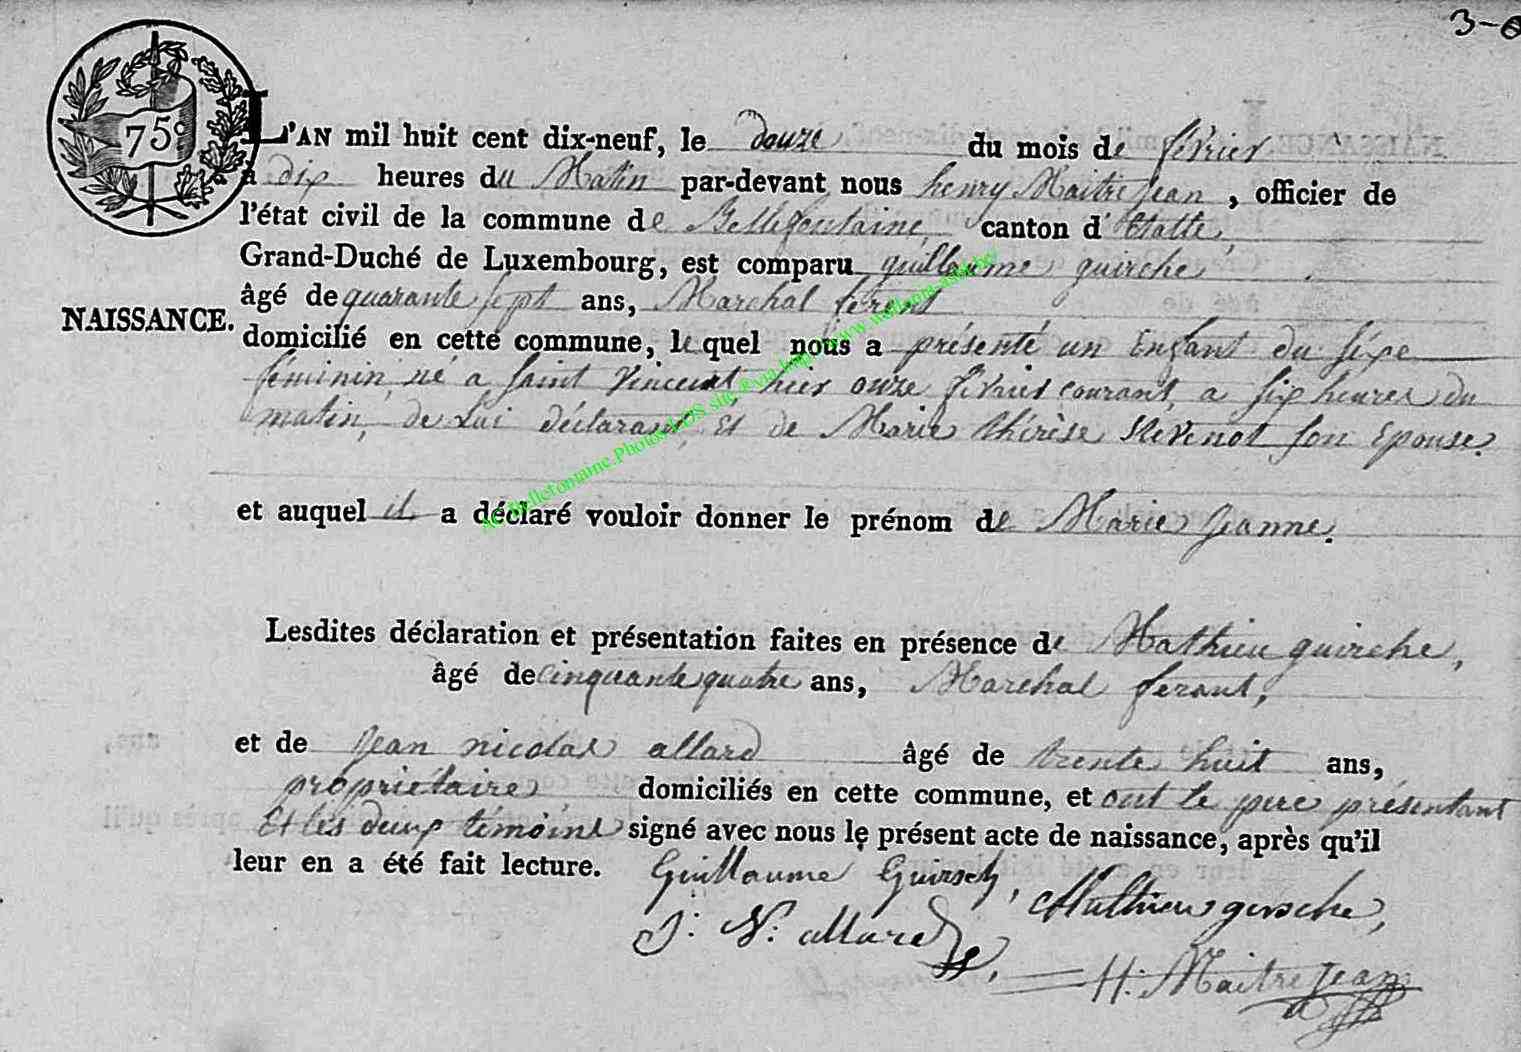 3-
75c
L'AN mil huit cent dix-neuf, le douze du mois de février
a dix heures du Matin par-devant nous henry Maitrejean, officier de
l'état civil de la commune de Bellefontaine, canton d'Etalle,
Grand-Duché de Luxembourg, est comparu guillaume guirche
âgé de quarante sept ans, Marchal ferant
NAISSANCE.
domicilié en cette commune, lequel nous a présenté un Enfant du séxe
féminin, né a saint Vincent, hier onze février courant, a six heures du
matin, de Lui déclarant, Et de Marie thérèse stevenot son Epouse.
et auquel il a déclaré vouloir donner le prénom de Marie jeanne.
Lesdites déclaration et présentation faites en présence de Mathieu guirche,
âgé de cinquante quatre ans, Marchal ferant,
et de jean nicolas allard âgé de trente huit ans,
propriétaire domiciliés en cette commune, et ont le pere présentant
Et les deux témoins signé avec nous le présent acte de naissance, après qu'il
leur en a été fait lecture. Guillaume Guirsch, Mathieu gersche,
J: N: allard
H: Maitrejean